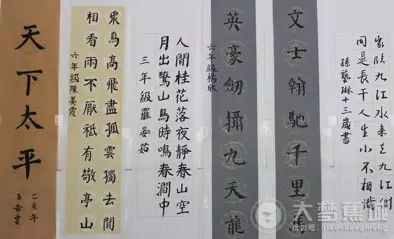 家臨九江水來去九江側
同是長干人生小不相識
孫藝琳十三歲書
文士翰馳千里馬
英豪劍攝九天龍
六年級楊欣
人閒桂花落夜靜春山空
月出驚山鳥時鳴春澗中
三年級羅晏茹
眾鳥高飛盡孤雲獨去閒
相看兩不厭祗有敬亭山
六年級陳姜霞
天下太平
己亥年
大梦蕉城